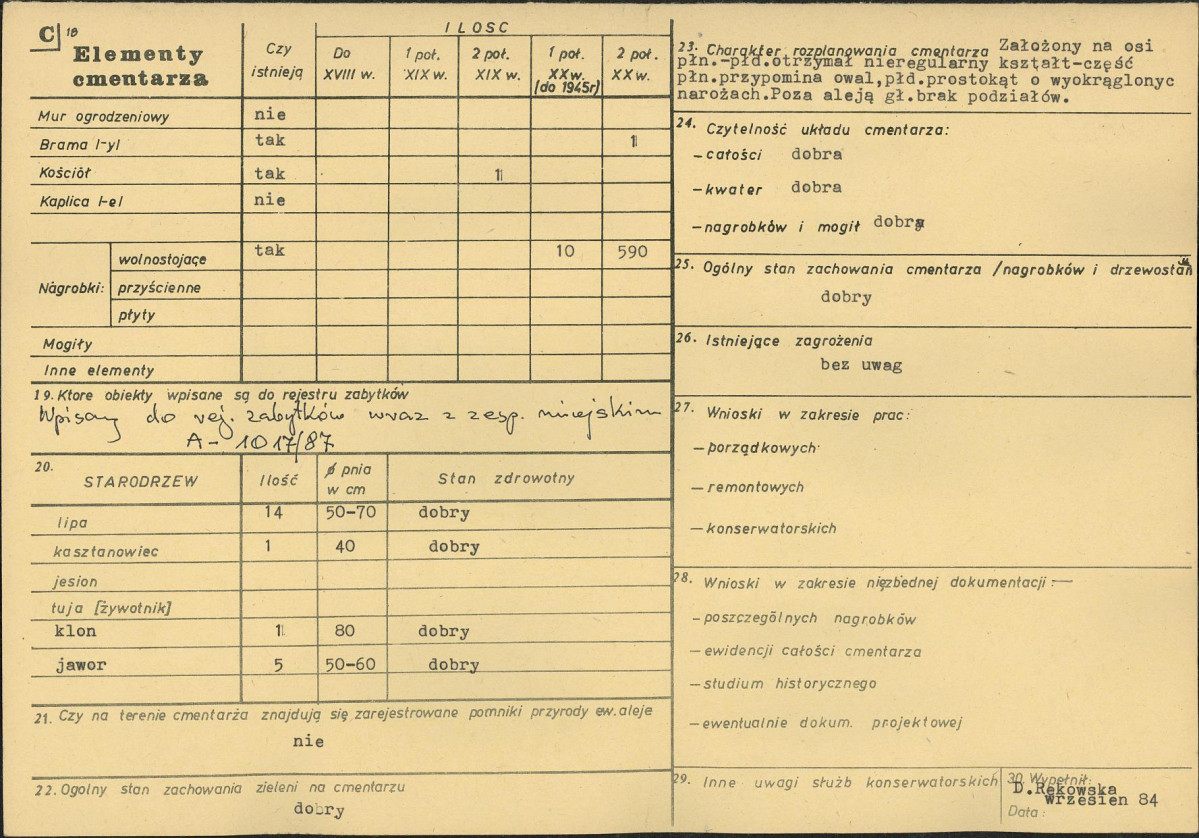 C 18
Elementy cmentarza
Czy istnieją
ILOSC
Do XVIII w.
1 poł. XIX w.
2 poł. XIX w.
1 poł. XX w. (do 1945r)
2 poł. XX w.
Mur ogrodzeniowy nie
Brama /-y/ tak 1
Kościół tak 1
Kaplica /-e/ nie
Nagrobki: wolnostojące tak 10 590
przyścienne
płyty
Mogiły
Inne elementy
19. Ktore obiekty wpisane są do rejestru zabytków
Wpisany do rej. zabytków wraz z zesp. miejskim
A - 1017/87
20. STARODRZEW Ilość ø pnia w cm Stan zdrowotny
lipa 14 50-70 dobry
kasztanowiec 1 40 dobry
jesion
tuja [żywotnik]
klon 1 80 dobry
jawor 5 50-60 dobry
21. Czy na terenie cmentarza znajdują się zarejestrowane pomniki przyrody ew. aleje
nie
22. Ogolny stan zachowania zieleni na cmentarzu
dobry
23. Charakter rozplanowania cmentarza Założony na osi
płn.-płd.otrzymał nieregularny kształt-część
płn.przypomina owal,płd.prostokąt o wyokrąglonyc
narożach.Poza aleją gł.brak podziałów.
24. Czytelność układu cmentarza:
- całości dobra
- kwater dobra
- nagrobków i mogił dobra
25. Ogólny stan zachowania cmentarza /nagrobków i drzewostan
dobry
26. Istniejące zagrożenia
bez uwag
27. Wnioski w zakresie prac:
- porządkowych
- remontowych
- konserwatorskich
28. Wnioski w zakresie niezbędnej dokumentacji: —
- poszczególnych nagrobków
- ewidencji całości cmentarza
- studium historycznego
- ewentualnie dokum. projektowej
29. Inne uwagi służb konserwatorskich
30. Wypełnił:
D.Rękowska
wrzesien 84
Data: